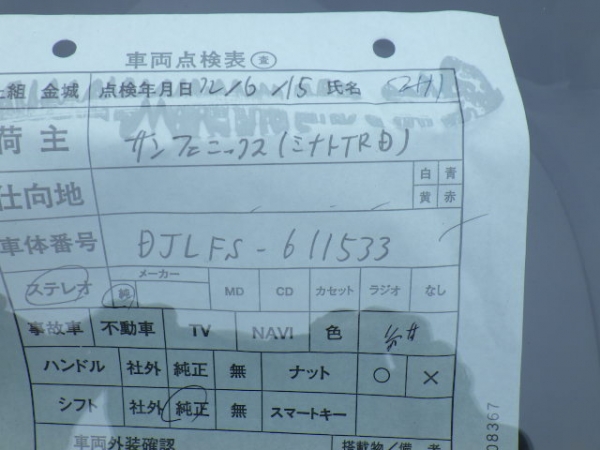 車両点検表 査
組 金城 点検年月日 22/6/15 氏名
荷主 サンフェニックス(ミナトTRD)
仕向地 白 青
黄 赤
車体番号 DJLFS-611533
ステレオ 純 メーカー MD CD カセット ラジオ なし
事故車 不動車 TV NAVI 色
ハンドル 社外 純正 無 ナット ○ ×
シフト 社外 純正 無 スマートキー
車両外装確認 搭載物/備考
08367